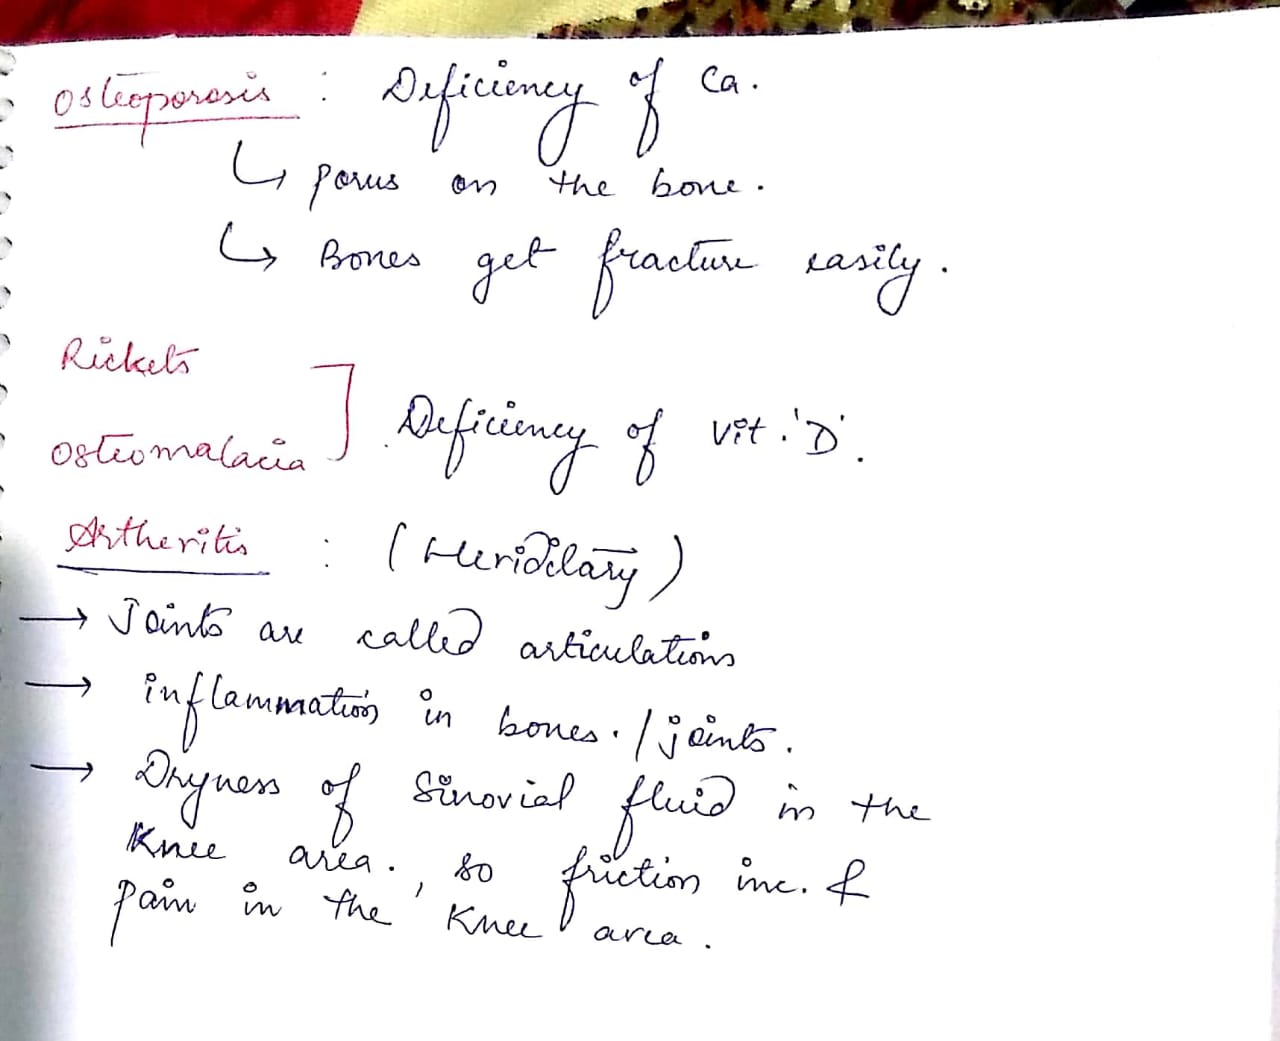 Osteoporosis : Deficiency of Ca.
↳ Porus on the bone.
↳ Bones get fracture easily.
Rickets
Osteomalacia ] Deficiency of Vit. 'D'.
Artheritis : (Heriditary)
→ Joints are called articulations
→ inflammation in bones. / joints.
→ Dryness of Sinovial fluid in the
Knee area. , so friction inc. &
Pain in the Knee area.